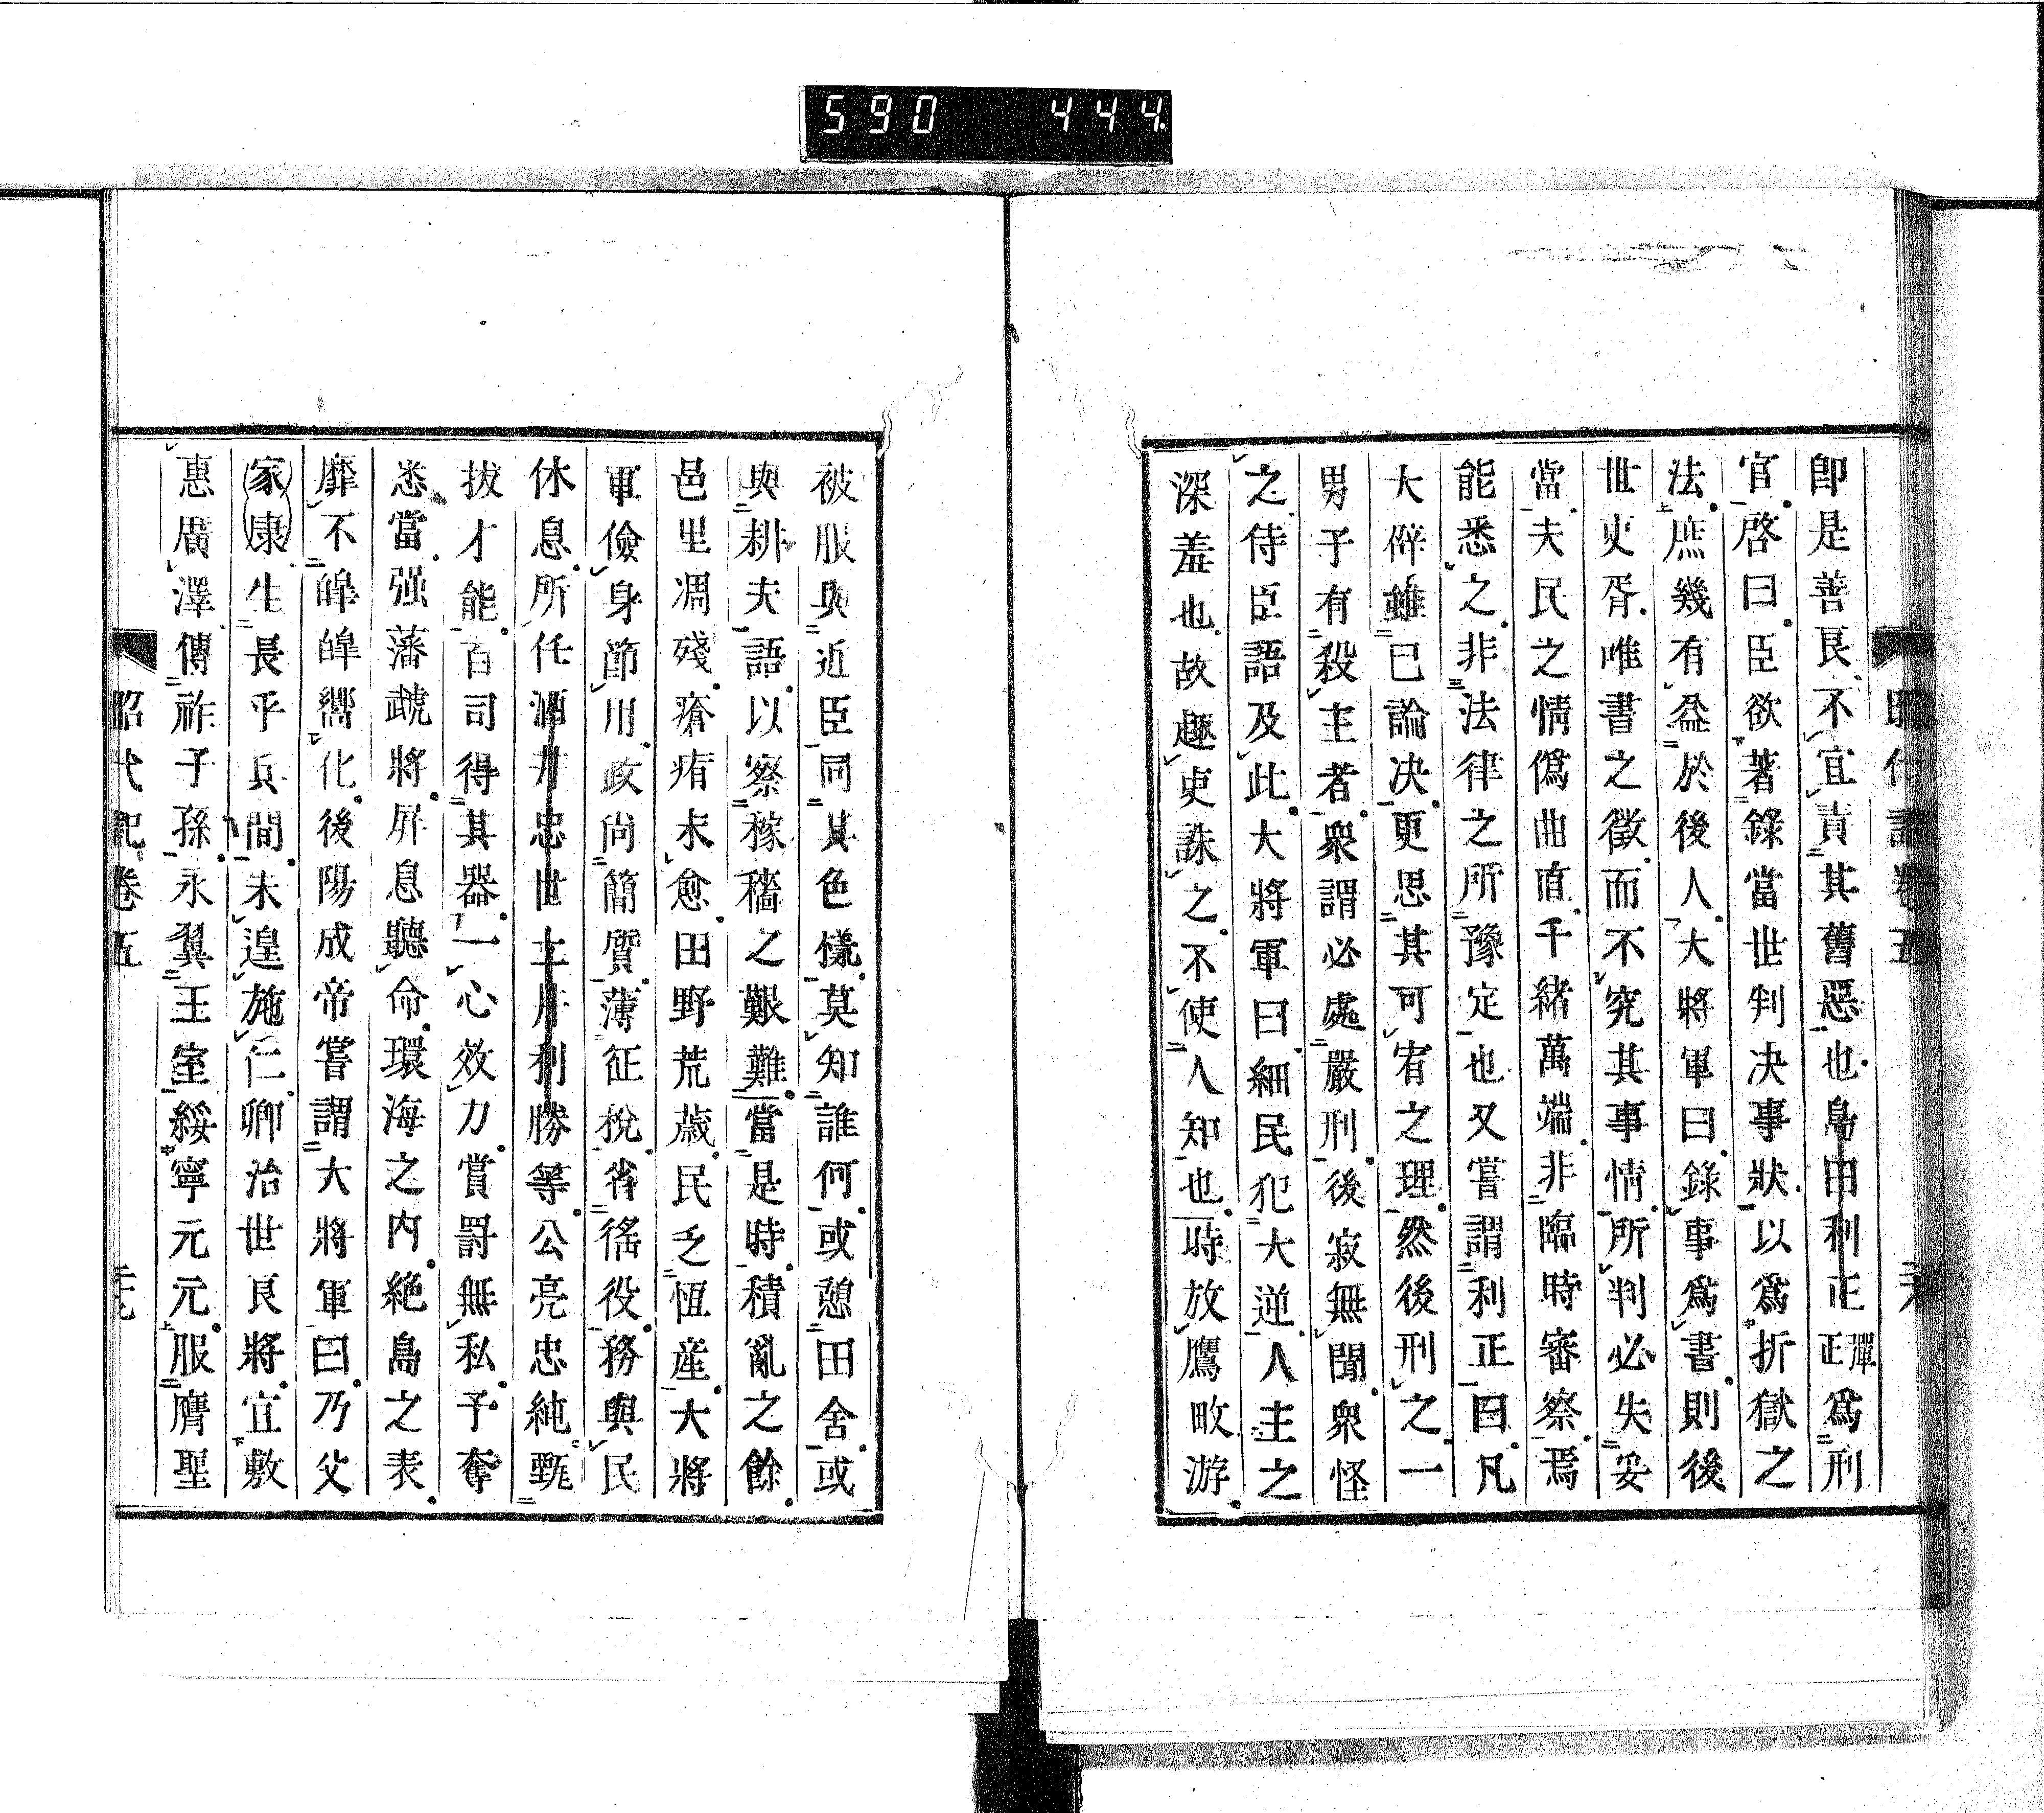 590 444
昭代記卷五
即是善良不宜責其舊惡也島田利正彈正爲刑
官啓曰臣欲著錄當世判决事狀以爲折獄之
法庶幾有益於後人大將軍曰錄事爲書則後
世吏胥唯書之徵而不究其事情所判必失妥
當夫民之情僞曲直千緒萬端非臨時審察焉
能悉之非法律之所豫定也又嘗謂利正曰凡
大辟雖已論决更思其可宥之理然後刑之一
男子有殺主者衆謂必處嚴刑後寂無聞衆怪
之侍臣語及此大將軍曰細民犯大逆人主之
深羞也故趣吏誅之不使人知也時放鷹畋游
被服與近臣同其色㨾莫知誰何或憩田舍或
與耕夫語以察稼穡之艱難當是時積亂之餘
邑里凋殘瘡痏未愈田野荒蕪民乏恆産大將
軍儉身節用政尚簡質薄征稅省徭役務與民
休息所任酒井忠世土井利勝等公亮忠純甄
拔才能百司得其器一心效力賞罰無私予奪
悉當强藩虣將屛息聽命環海之内絶島之表
靡不皥皥嚮化後陽成帝嘗謂大將軍曰乃父
家康生長乎兵間未遑施仁卿治世良將宜敷
惠廣澤傳祚子孫永翼王室綏寧元元服膺聖
昭代記卷五